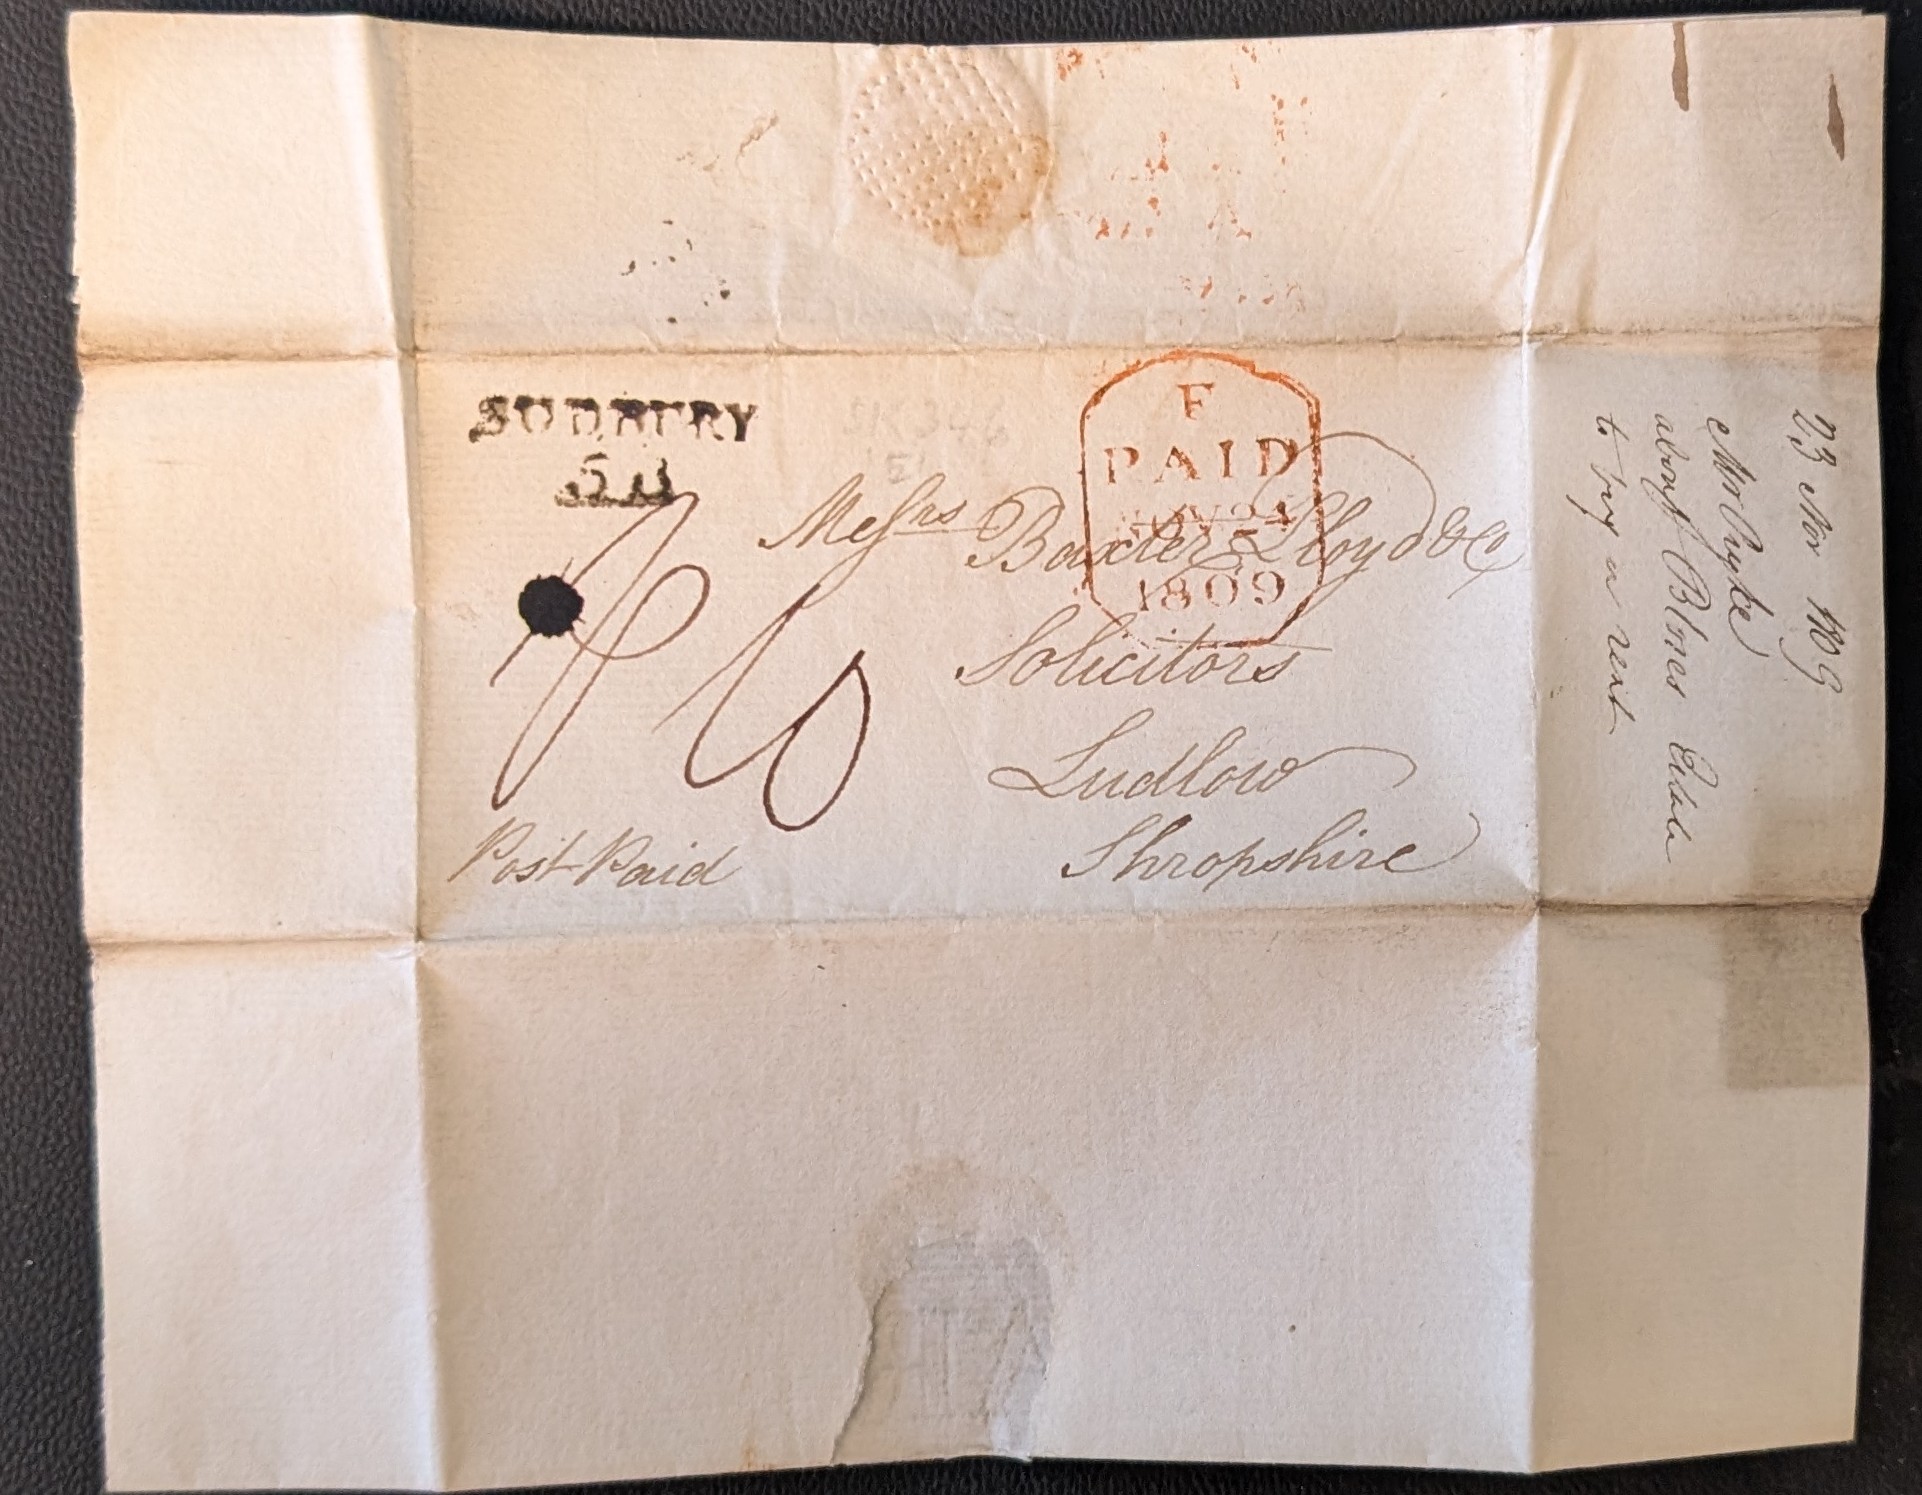 SUDBURY
F
PAID
NOV 24
1809
Messrs Baxter Lloyd & Co
Solicitors
Ludlow
Shropshire
Post Paid
23 Nov 1809
Mr
about Estate
to a rent